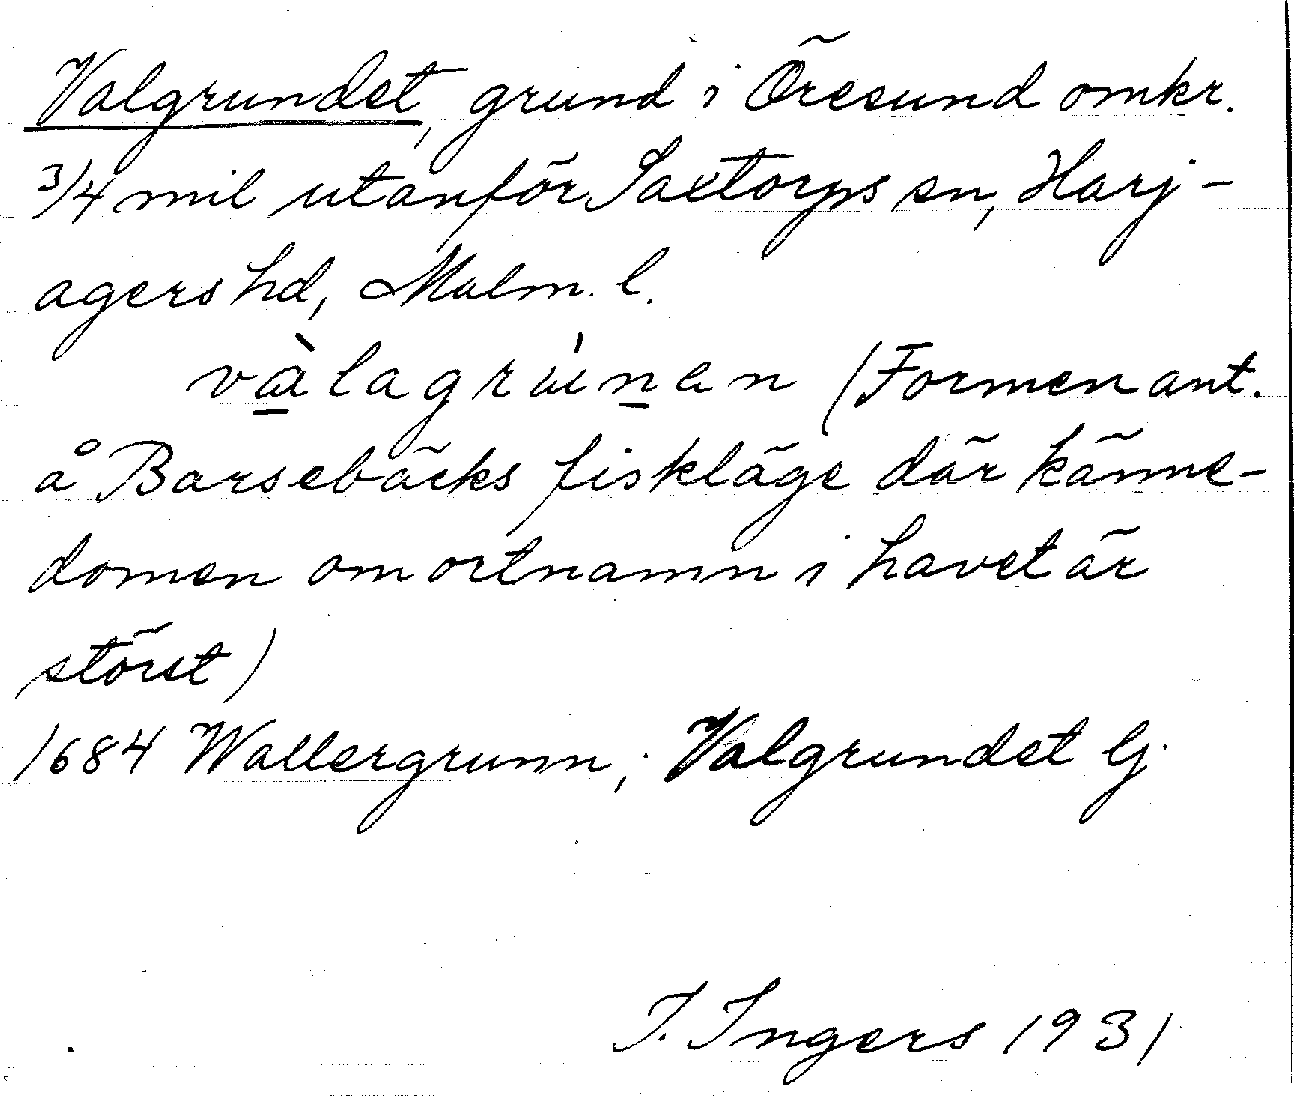 Valgrundet, grund i Öresund omkr.
3/4 mil utanför Saxtorps sn, Harj-
agers hd, Malm. l.
vàlagrúnen (Formen ant.
å Barsebäcks fiskläge där känne-
domen om ortnamn i havet är
störst)
1684 Wallergrunn; Valgrundet Gj.
I. Ingers 1931